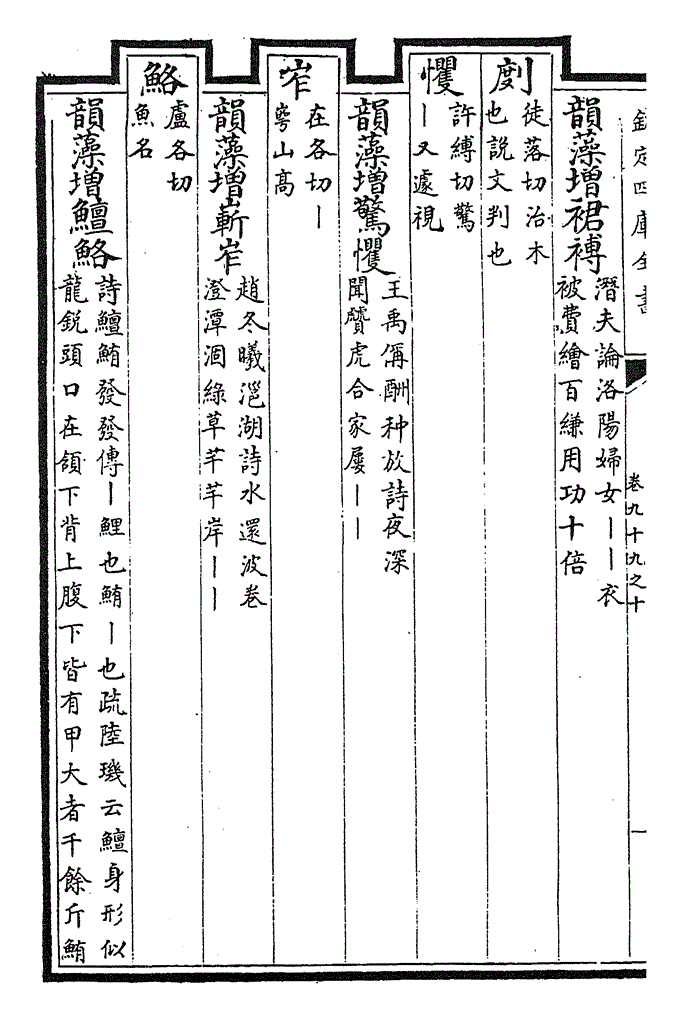 欽定四庫全書
卷九十九之十
一
韻藻增裙襻
潛夫論洛陽婦女丨丨衣
被費繒百縑用功十倍
剫
徒落切治木
也說文判也
戄
許縛切驚
丨又遽視
韻藻增驚戄
王禹偁酬种放詩夜深
聞贙虎合家屢丨丨
岝
在各切丨
㟧山高
韻藻增嶄岝
趙冬曦㴩湖詩水還波卷
澄潭涸綠草芊芊岸丨丨
鮥
盧各切
魚名
韻藻增鱣鮥
詩鱣鮪發發傳丨鯉也鮪丨也疏陸璣云鱣身形似
龍銳頭口在頷下背上腹下皆有甲大者千餘斤鮪